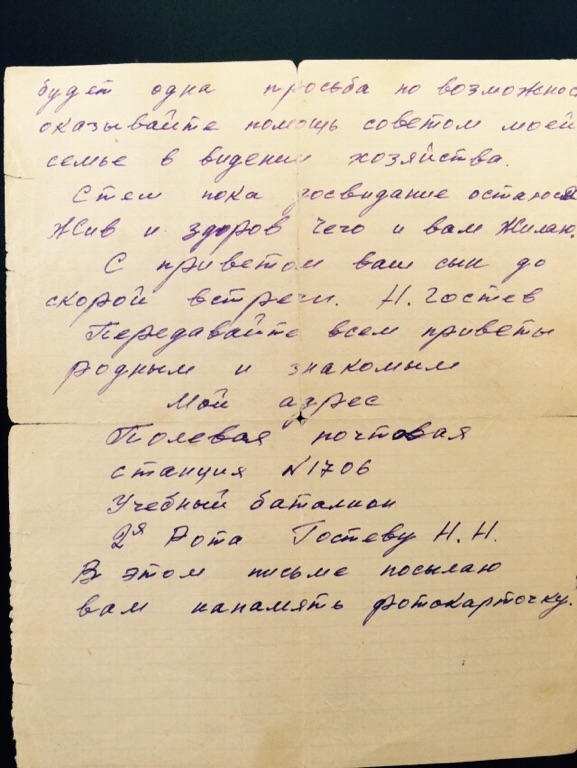 будет одна просьба по возможнос
оказывайте помощь советом моей
семье в видении хозяйства.
Стем пока досвидание остаюся
Жив и здоров чего и вам Жилаю.
С приветом ваш сын до
скорой встречи. Н. Гостев
Передавайте всем приветы
родным и знакомым
Мой адрес
Полевая почтовая
станция №1706
Учебный баталион
2я Рота Гостеву Н.Н.
В этом письме посылаю
вам напамять фотокарточку.